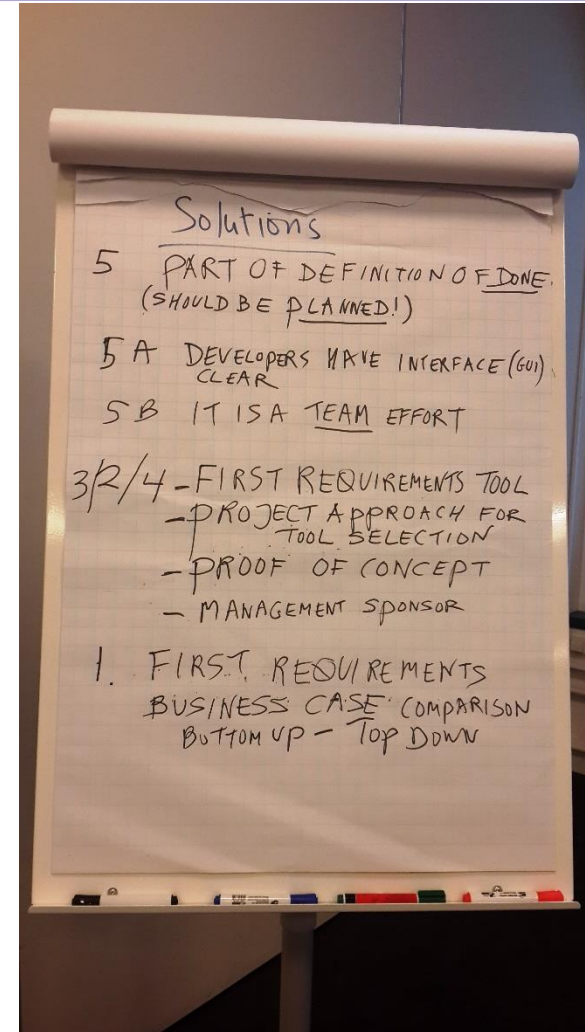 Solutions
5 PART OF DEFINITION OF DONE.
(SHOULD BE PLANNED!)
5 A DEVELOPERS HAVE INTERFACE (GUI)
CLEAR
5 B IT IS A TEAM EFFORT
3/2/4 - FIRST REQUIREMENTS TOOL
- PROJECT APPROACH FOR
TOOL SELECTION
- PROOF OF CONCEPT
- MANAGEMENT SPONSOR
1. FIRST REQUIREMENTS
BUSINESS CASE COMPARISON
BOTTOM UP - TOP DOWN